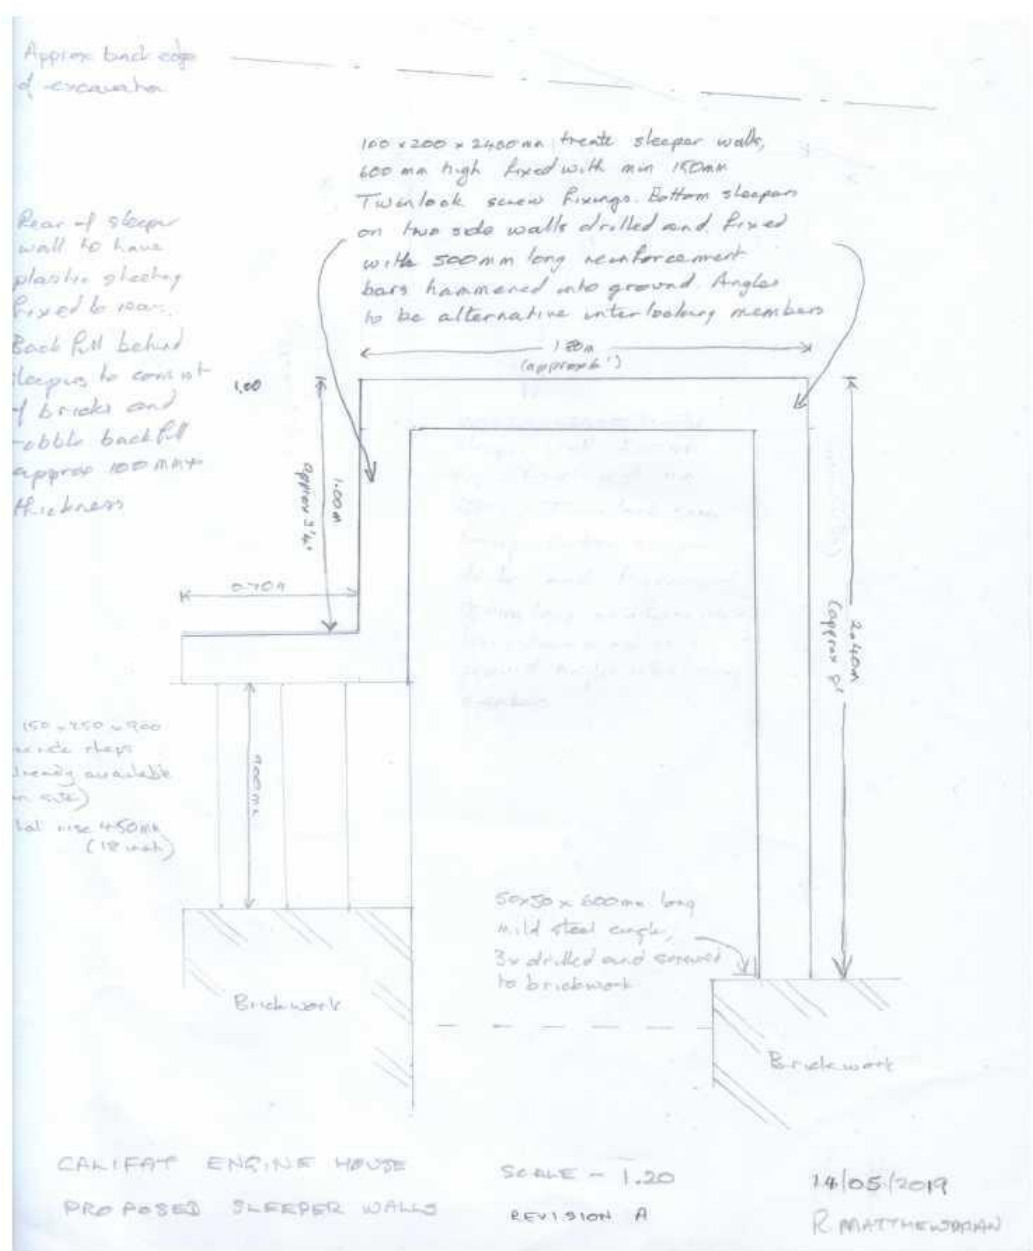 Approx back edge
of excavation
100 x 200 x 2400mm treate sleeper walls,
600 mm high fixed with min 150mm
Twinlock screw fixings. Bottom sleepers
on two side walls drilled and fixed
with 500mm long reinforcement
bars hammered into ground. Angles
to be alternative interlocking members
Rear of sleeper
wall to have
plastic sheeting
fixed to rear.
Back fill behind
sleepers to consist
of bricks and
backfill
approx 100mm
thickness
1.80m
(approx 6')
1.00
1.00m
approx
0.70m
2.40m
(approx
150 x 250 x 900
steps
already available
on site)
rise 450mm
(18 inch)
900mm
50x50 x 600mm long
mild steel angle,
3x drilled and screwed
to brickwork
Brickwork
Brickwork
CALIFAT ENGINE HOUSE
PROPOSED SLEEPER WALLS
SCALE - 1.20
REVISION A
14/05/2019
R MATTHEWMAN